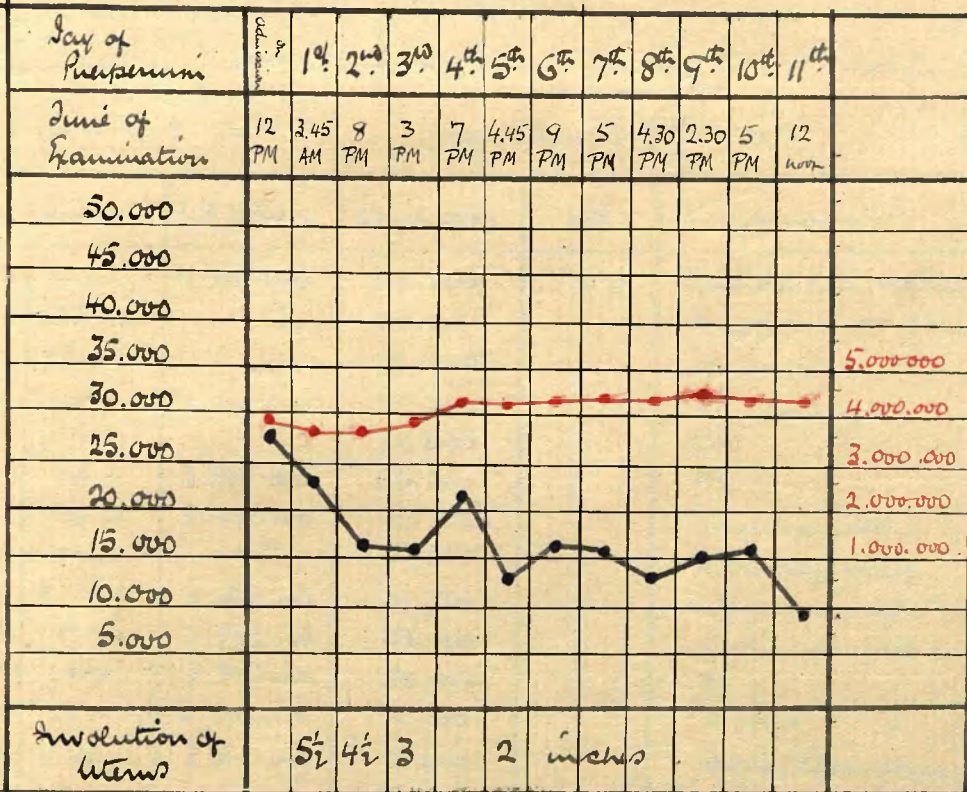 Day of Puerperium On admission 1st 2nd 3rd 4th 5th 6th 7th 8th 9th 10th 11th
Time of Examination 12 PM 3.45 AM 8 PM 3 PM 7 PM 4.45 PM 9 PM 5 PM 4.30 PM 2.30 PM 5 PM 12 noon
50.000
45.000
40.000
35.000 5.000.000
30.000 4.000.000
25.000 3.000.000
20.000 2.000.000
15.000 1.000.000
10.000
5.000
Involution of Uterus 5½ 4½ 3 2 inches